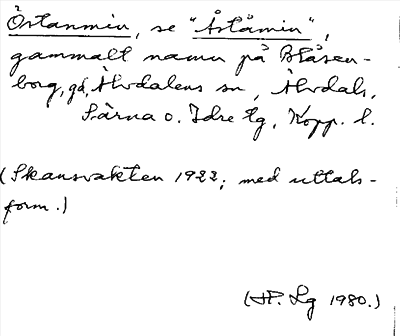 Östanmin, se "Åståmin",
gammalt namn på Blåsen-
borg, gd, Älvdalens sn, Älvdals,
Särna o. Idre tg, Kopp. l.
(Skansvakten 1922; med uttals-
form.)
(HP. Lg 1980.)